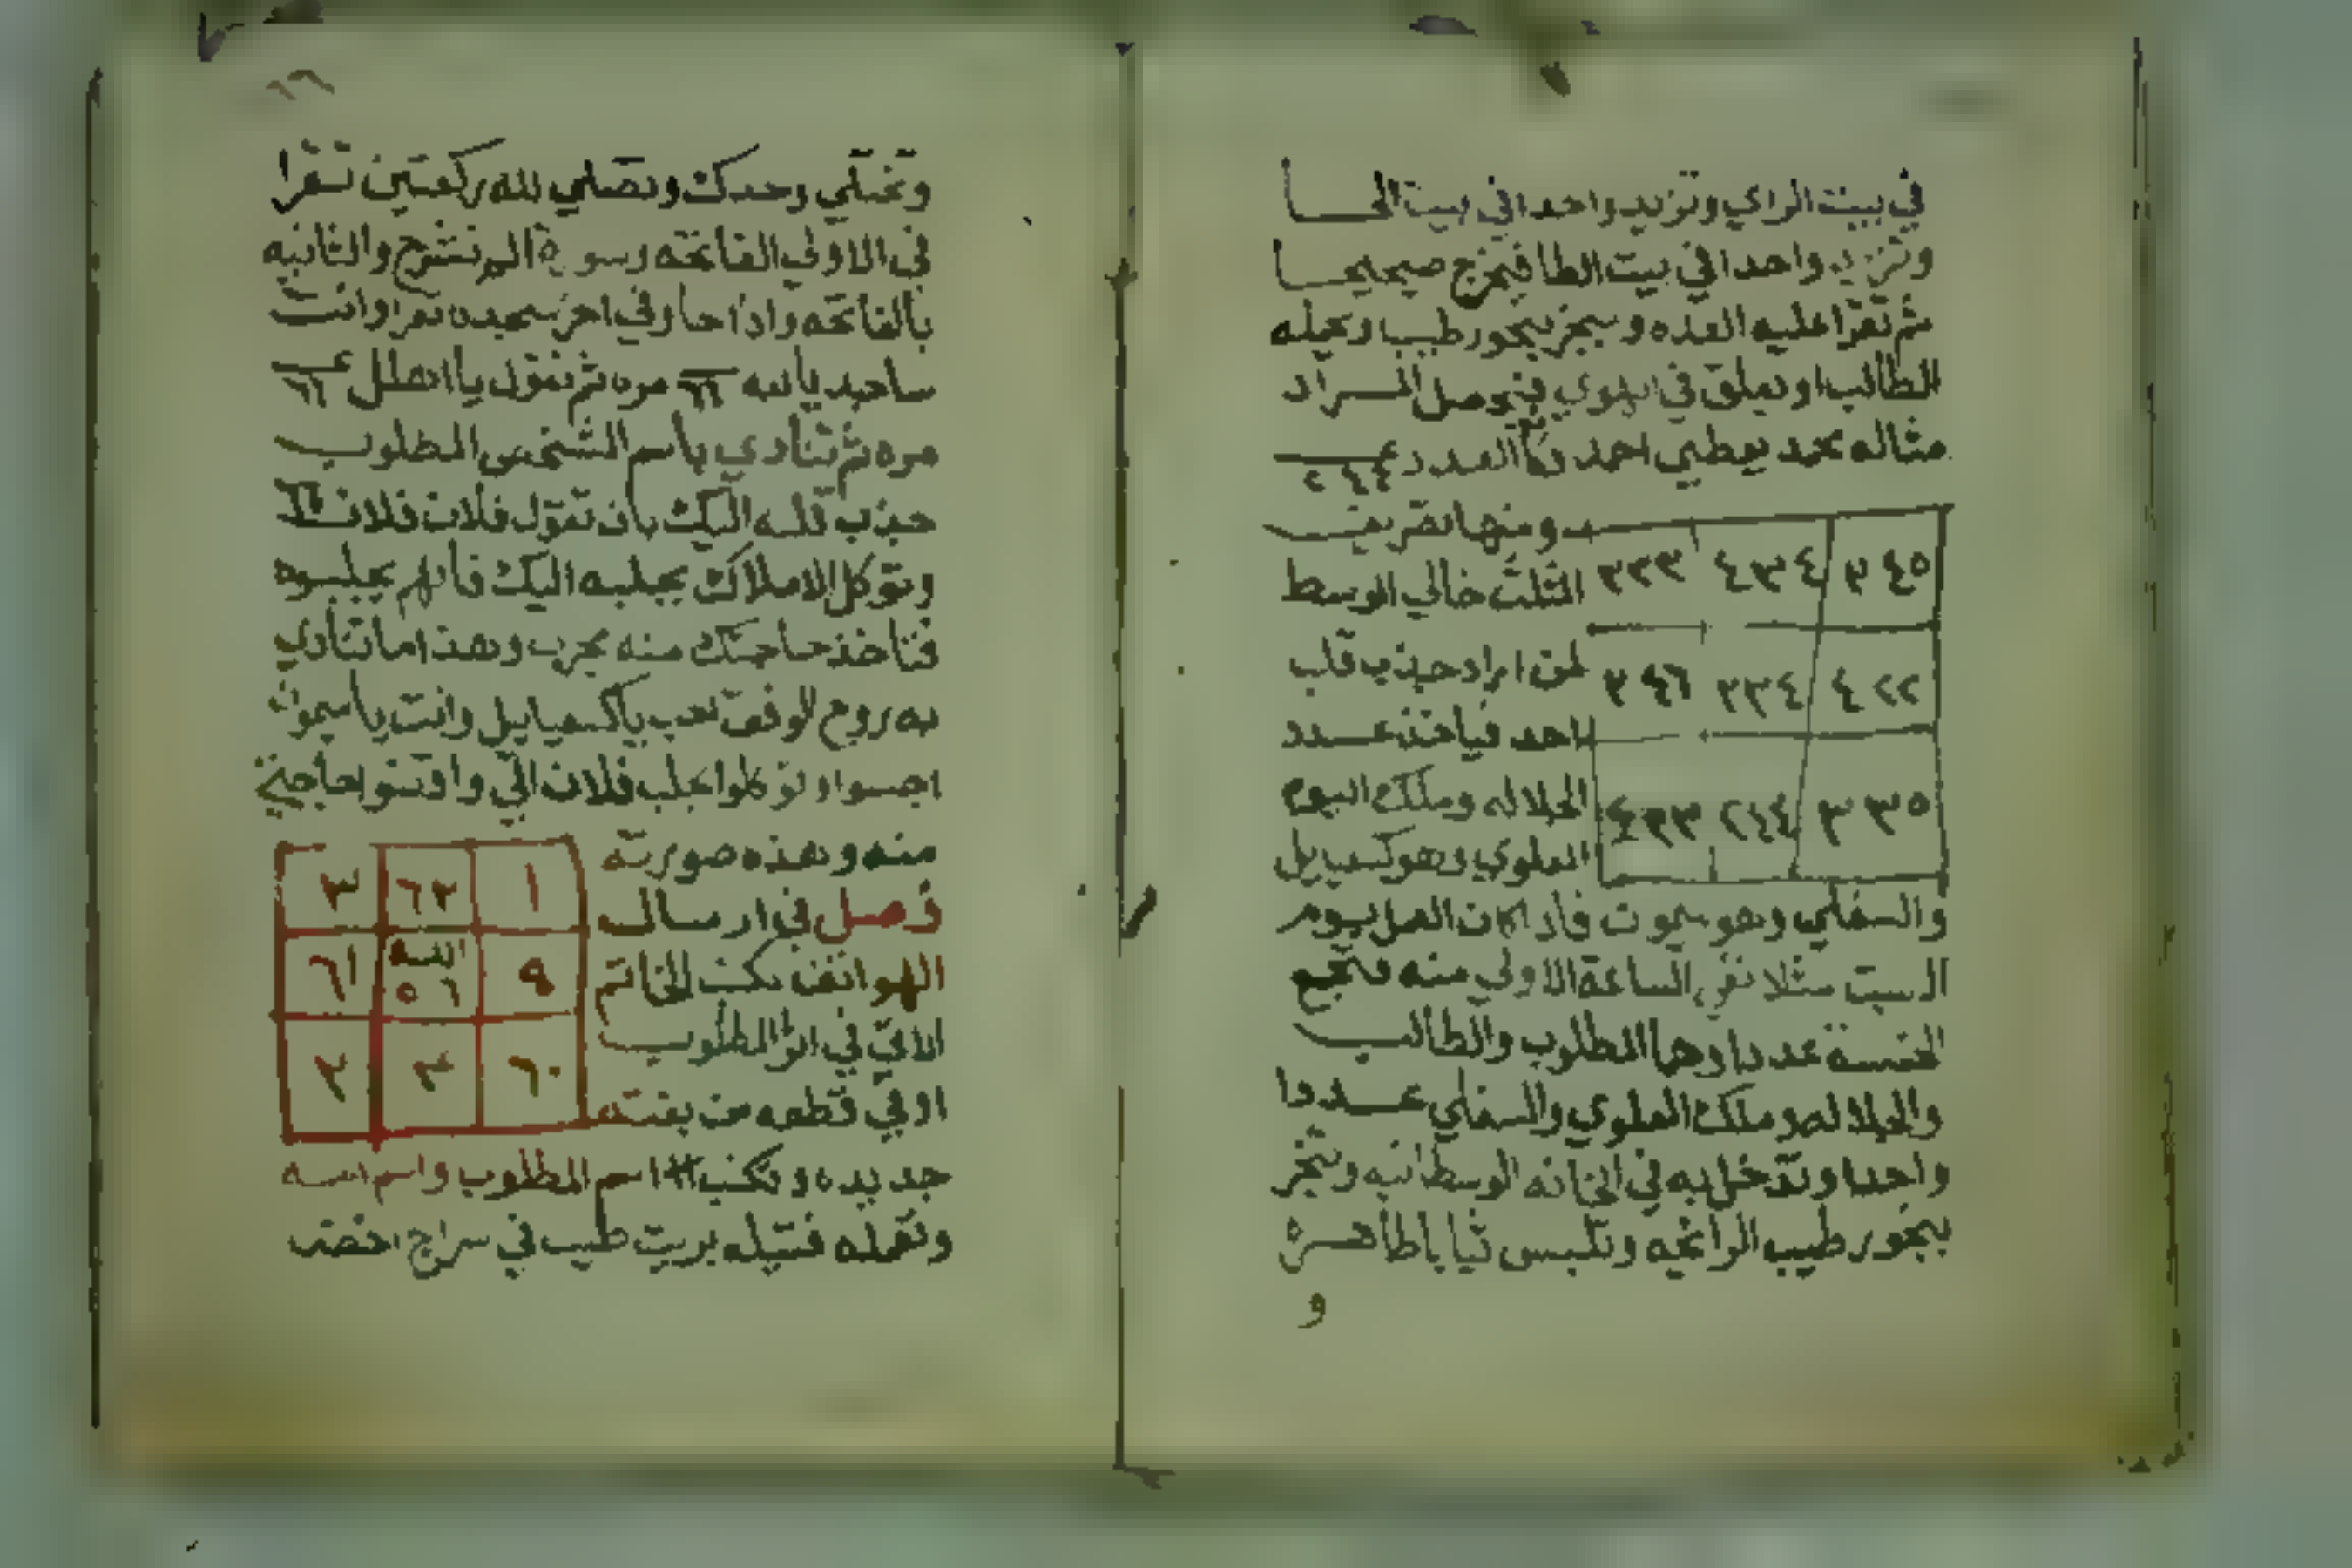 في بيت الراي وتزيد واحدا في بيت الحا
وتزيد واحدا في بيت الطا فيخرج صحيحا
ثم تقرا عليه العده وبخر ببخور طيب وتحمله
الطالب او تعلق في الهوي فيحصل المراد
مثاله محمد يعطي احمد العدد
ومنها تصريف
٣٤٥ ٤٣٤ ٢٢٣
المثلث خالي الوسط
لمن اراد جذب قلب
٤٢٢ ٢٣٤ ٢٩٦
احد فياخذ عدد
الجلاله وملك اليوم
٣٣٥ ٢٤٤
العلوي وهو كسفيايل
والسفلي وهو سموت فاذا كان العمل يوم
السبت مثلا ففي الساعة الاولي منه فتجمع
الخمسة عدد اوهما المطلوب والطالب
والجلاله وملك العلوي والسفلي عددا
واحدا وتدخل به في الخانه الوسطانيه وتبخر
ببخور طيب الرائحه وتلبس ثيابا طاهرة
و
وتختلي وحدك وتصلي لله ركعتين تقرا
في الاولي الفاتحه وسورة الم نشرح والثانيه
بالفاتحه واذا جا وفي اخر سجده تقرا وانت
ساجد يا الله ٦٦ مره ثم تقول يا اهطلل ٦٦
مره ثم تنادي باسم الشخص المطلوب
جذب قلبه اليك بان تقول فلان فلان
وتوكل الاملاك بجلبه اليك فانهم يجلبوه
فتاخذ حاجتك منه مجرب وهذا ما تنادي
به روح الوفق تجب يا كسفيايل وانت يا سموت
اجيبوا وتوكلوا بجلب فلان الي واقضوا حاجتي
منه وهذه صورته
١ ٦٢ ٣
فصل في ارسال
الهواتف تكتب الخاتم
٩ الله ٦٥ ٦١
الاتي في اثر المطلوب
او في قطعه من بفته
٦٠ ٣ ٢
جديده وتكتب اسم المطلوب واسم امه
وتعمله فتيله بزيت طيب في سراج اخضر